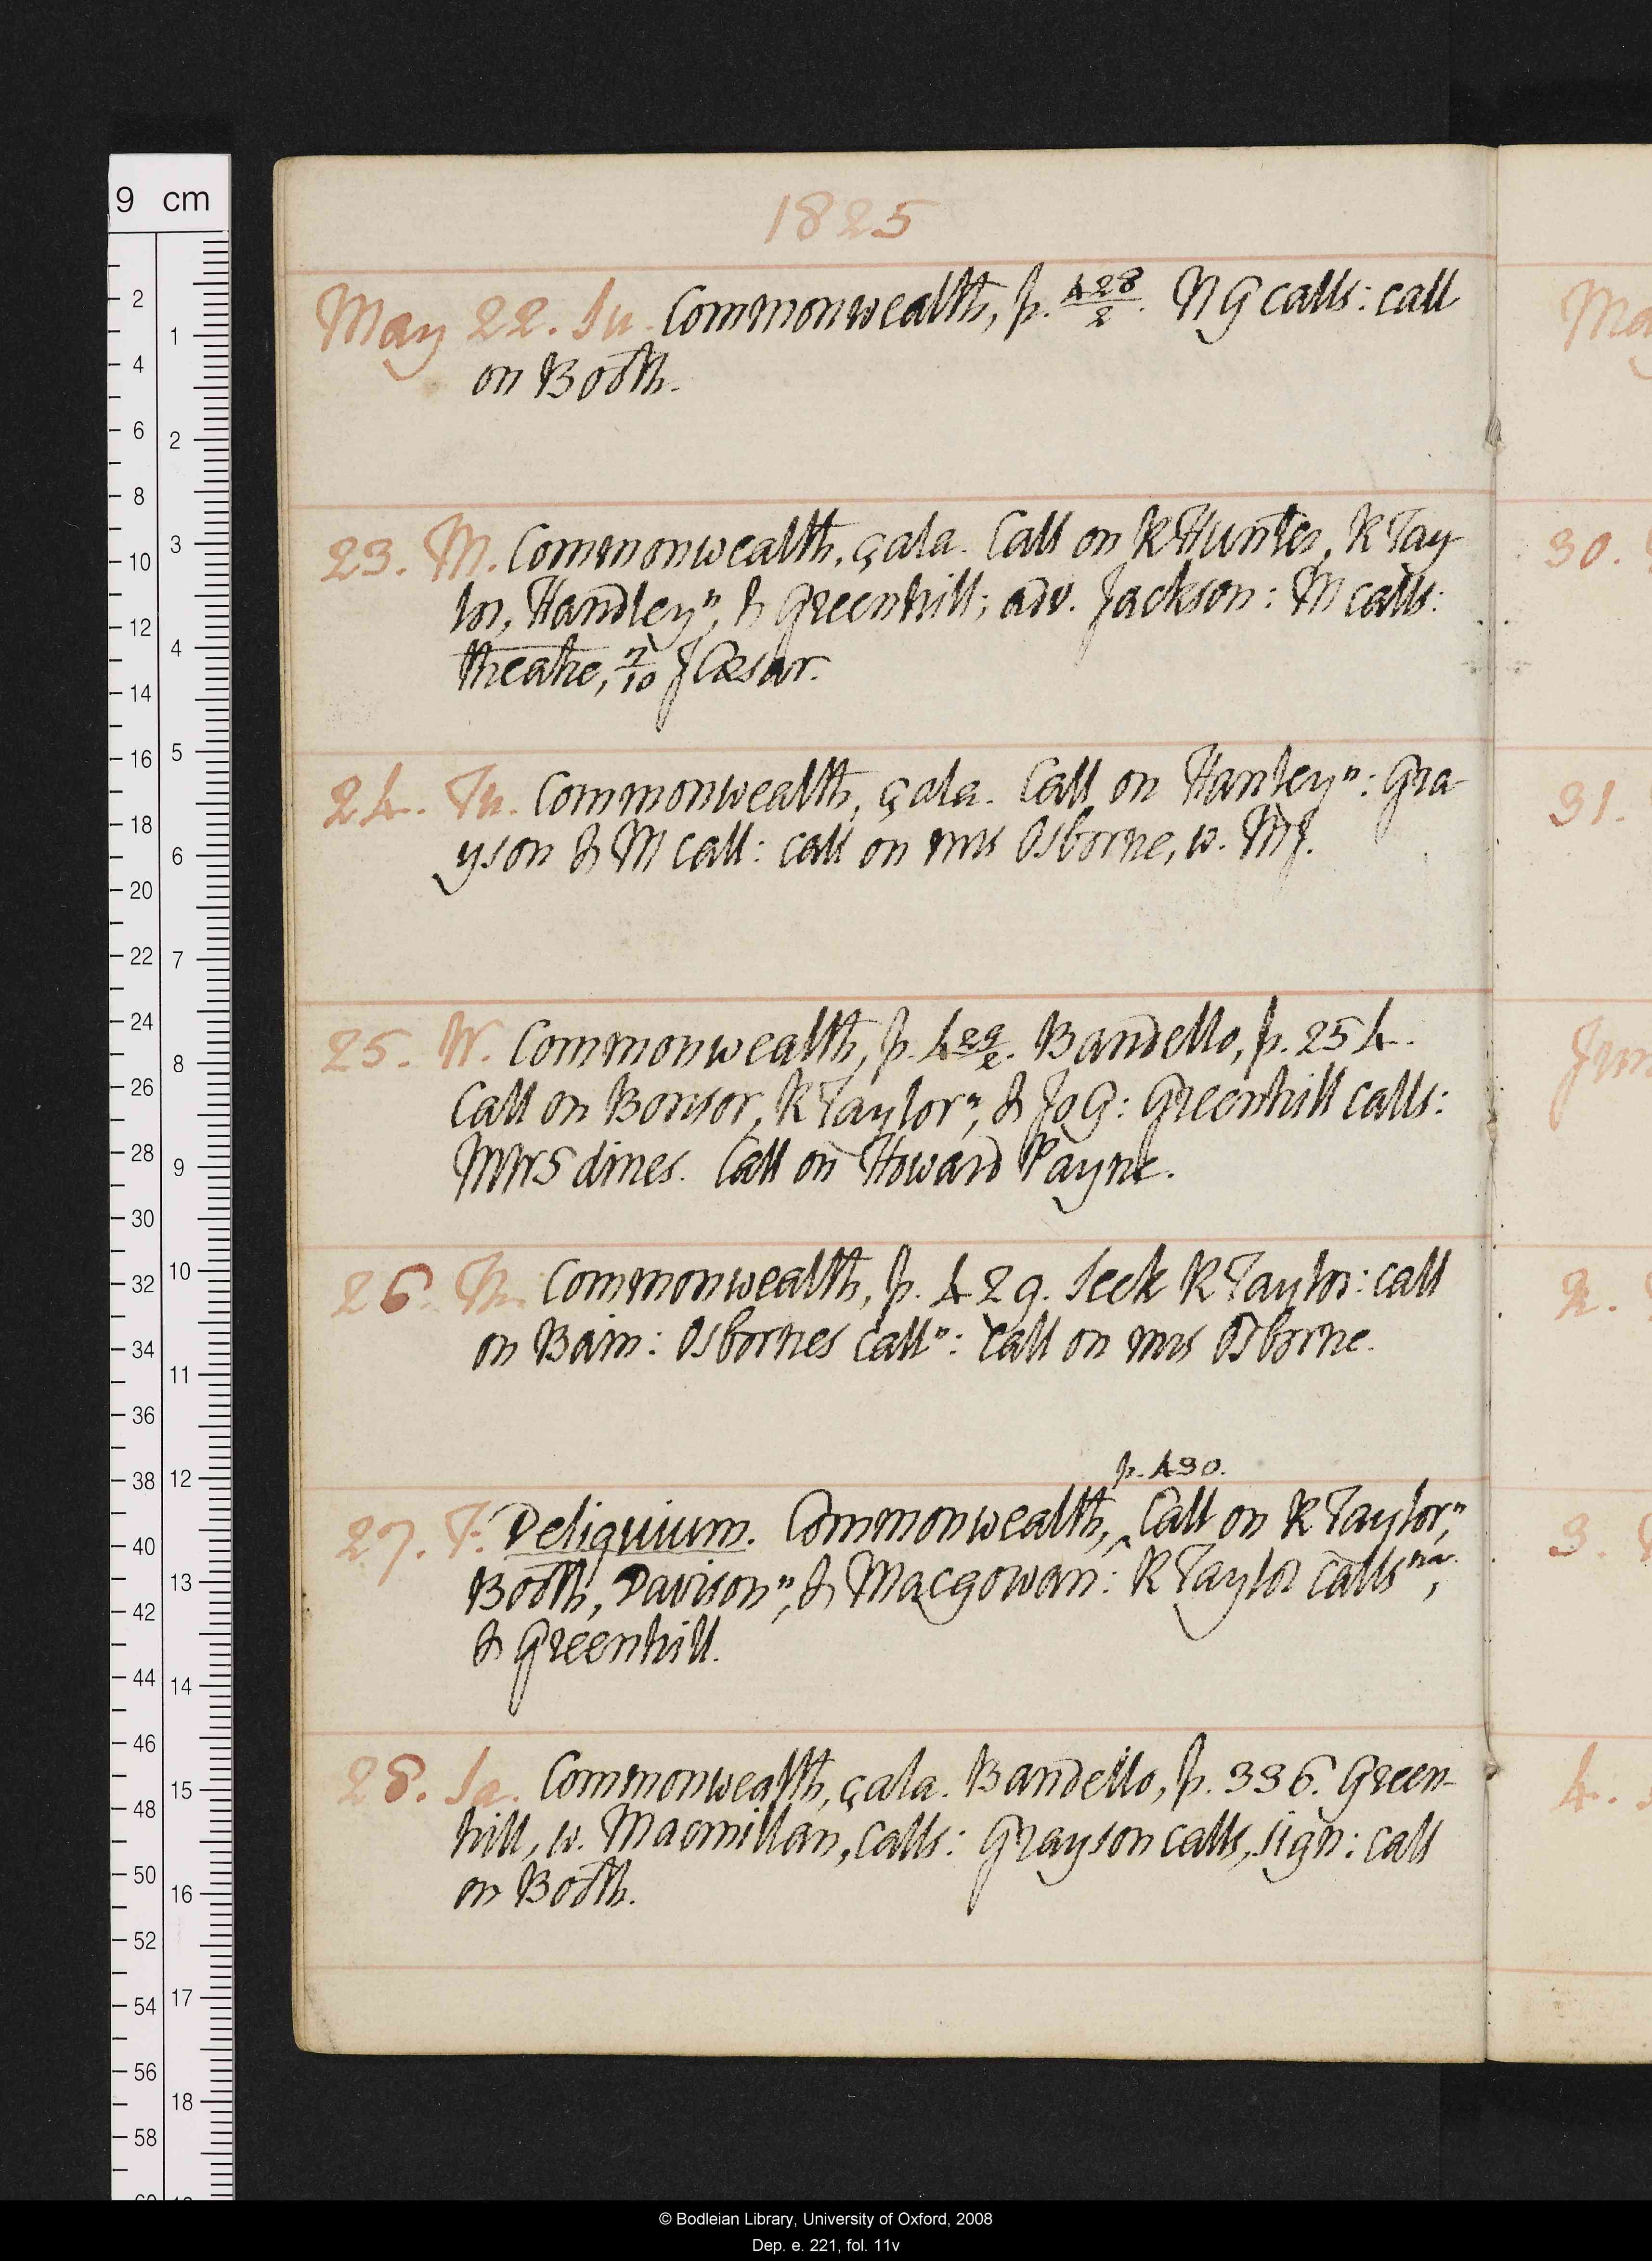 9 cm
1825
May 22. Su. Commonwealth, p. 428/2. N G calls: call
on Booth.
23. M. Commonwealth, çala. Call on R Hunter, R Tay-
lor, Handley ⁿ, & Greenhill; adv. Jackson: M calls:
theatre, 7/10 J Cæsar.
24. Tu. Commonwealth, çala. Call on Hanley ⁿ: Gra-
yson & M call: call on mrs Osborne, w. MJ.
25. W. Commonwealth, p. 429/2. Bandello, p. 254.
Call on Bonsor, R Taylor ⁿ, & Jo G: Greenhill calls:
MWS dines. Call on Howard Payne.
26. Th. Commonwealth, p. 429. Seek R Taylor: call
on Bain: Osbornes call ⁿ: call on mrs Osborne.
p. 430.
27. F. Deliquium. Commonwealth, ‸ Call on R Taylor ⁿ,
Booth, Davison ⁿ, & Macgowan: R Taylor calls ⁿᵃ,
& Greenhill.
28. Sa. Commonwealth, çala. Bandello, p. 336. Green-
hill, w. Macmillan, calls: Grayson calls, sign: call
on Booth.
Ma
30.
31.
Jun
2.
3.
4.
© Bodleian Library, University of Oxford, 2008
Dep. e. 221, fol. 11v